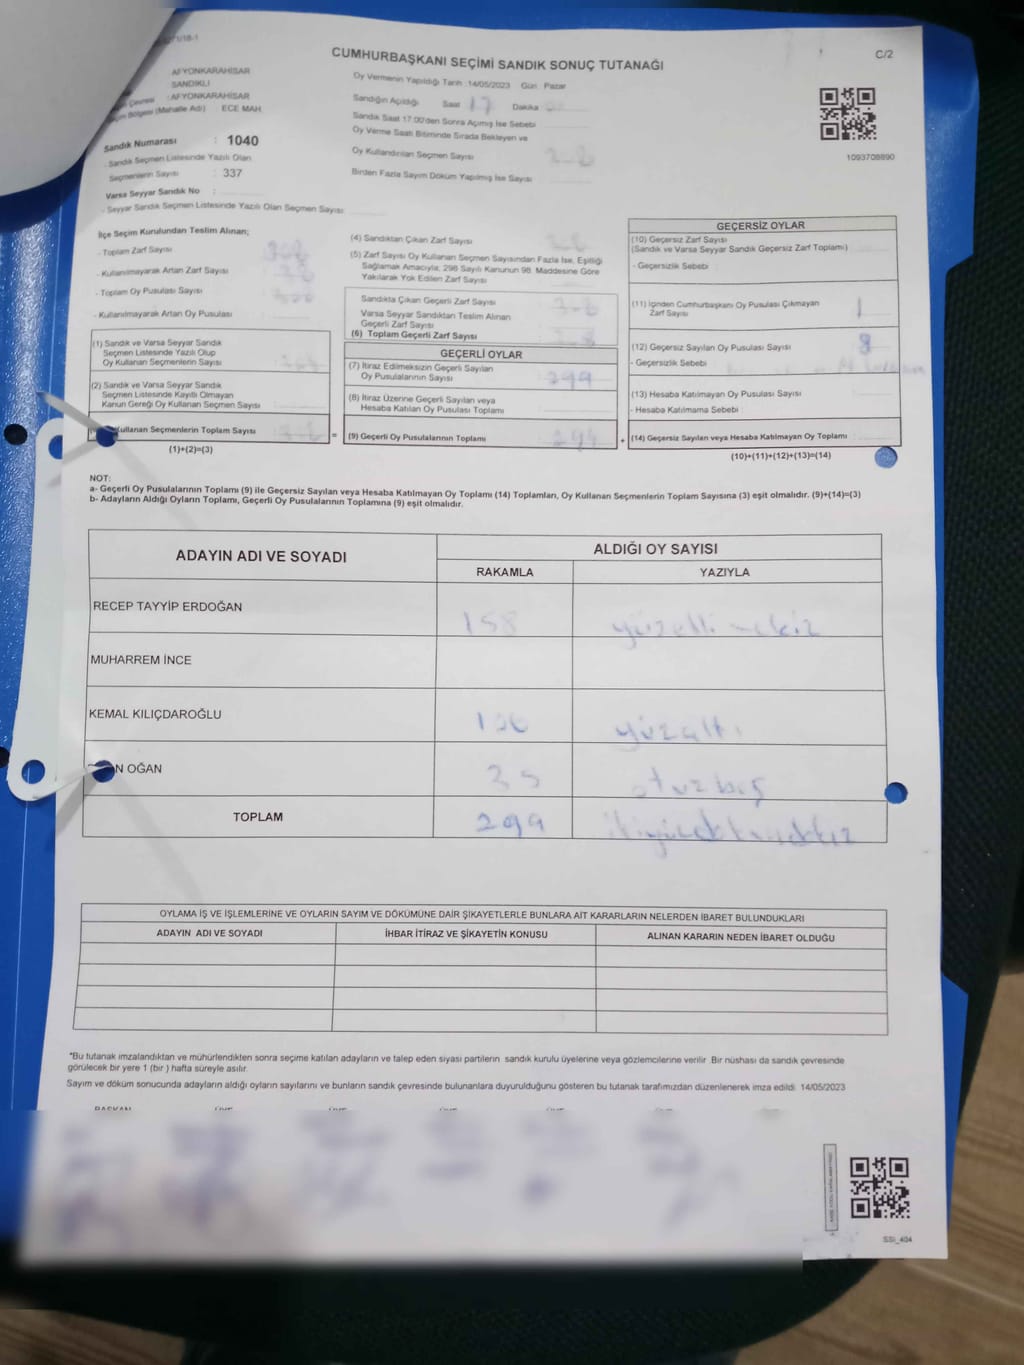 CUMHURBAŞKANI SEÇİMİ SANDIK SONUÇ TUTANAĞI
C/2
AFYONKARAHİSAR
SANDIKLI
: AFYONKARAHİSAR
Bölgesi (Mahalle Adı) ECE MAH.
Oy Vermenin Yapıldığı Tarih :14/05/2023 Gün: Pazar
Sandığın Açıldığı Saat 17 Dakika
Sandık Saat 17:00'den Sonra Açmış İse Sebebi
Oy Verme Saati Bitiminde Sırada Bekleyen ve
Oy Kullandırılan Seçmen Sayısı
Birden Fazla Sayım Döküm Yapılmış İse Sayısı
1093708890
Sandık Numarası : 1040
- Sandık Seçmen Listesinde Yazılı Olan
Seçmenlerin Sayısı : 337
Varsa Seyyar Sandık No :
- Seyyar Sandık Seçmen Listesinde Yazılı Olan Seçmen Sayısı:
İlçe Seçim Kurulundan Teslim Alınan;
- Toplam Zarf Sayısı
- Kullanılmayarak Artan Zarf Sayısı
- Toplam Oy Pusulası Sayısı
- Kullanılmayarak Artan Oy Pusulası
(1) Sandık ve Varsa Seyyar Sandık
Seçmen Listesinde Yazılı Olup
Oy Kullanan Seçmenlerin Sayısı
(2) Sandık ve Varsa Seyyar Sandık
Seçmen Listesinde Kayıtlı Olmayan
Kanun Gereği Oy Kullanan Seçmen Sayısı
Kullanan Seçmenlerin Toplam Sayısı
(1)+(2)=(3)
(4) Sandıktan Çıkan Zarf Sayısı
(5) Zarf Sayısı Oy Kullanan Seçmen Sayısından Fazla İse, Eşitliği
Sağlamak Amacıyla; 298 Sayılı Kanunun 98. Maddesine Göre
Yakılarak Yok Edilen Zarf Sayısı
Sandıkta Çıkan Geçerli Zarf Sayısı
Varsa Seyyar Sandıktan Teslim Alınan
Geçerli Zarf Sayısı
(6) Toplam Geçerli Zarf Sayısı
GEÇERLİ OYLAR
(7) İtiraz Edilmeksizin Geçerli Sayılan
Oy Pusulalarının Sayısı : 299
(8) İtiraz Üzerine Geçerli Sayılan veya
Hesaba Katılan Oy Pusulası Toplamı
= (9) Geçerli Oy Pusulalarının Toplamı : 299
GEÇERSİZ OYLAR
(10) Geçersiz Zarf Sayısı
(Sandık ve Varsa Seyyar Sandık Geçersiz Zarf Toplamı)
- Geçersizlik Sebebi
(11) İçinden Cumhurbaşkanı Oy Pusulası Çıkmayan
Zarf Sayısı : 1
(12) Geçersiz Sayılan Oy Pusulası Sayısı : 8
- Geçersizlik Sebebi
(13) Hesaba Katılmayan Oy Pusulası Sayısı
- Hesaba Katılmama Sebebi
+ (14) Geçersiz Sayılan veya Hesaba Katılmayan Oy Toplamı
(10)+(11)+(12)+(13)=(14)
NOT:
a- Geçerli Oy Pusulalarının Toplamı (9) ile Geçersiz Sayılan veya Hesaba Katılmayan Oy Toplamı (14) Toplamları, Oy Kullanan Seçmenlerin Toplam Sayısına (3) eşit olmalıdır. (9)+(14)=(3)
b- Adayların Aldığı Oyların Toplamı, Geçerli Oy Pusulalarının Toplamına (9) eşit olmalıdır.
ADAYIN ADI VE SOYADI ALDIĞI OY SAYISI
RAKAMLA YAZIYLA
RECEP TAYYİP ERDOĞAN 158 yüzelli sekiz
MUHARREM İNCE
KEMAL KILIÇDAROĞLU 106 yüzaltı
N OĞAN 35 otuzbeş
TOPLAM 299
OYLAMA İŞ VE İŞLEMLERİNE VE OYLARIN SAYIM VE DÖKÜMÜNE DAİR ŞİKAYETLERLE BUNLARA AİT KARARLARIN NELERDEN İBARET BULUNDUKLARI
ADAYIN ADI VE SOYADI İHBAR İTİRAZ VE ŞİKAYETİN KONUSU ALINAN KARARIN NEDEN İBARET OLDUĞU
*Bu tutanak imzalandıktan ve mühürlendikten sonra seçime katılan adayların ve talep eden siyasi partilerin sandık kurulu üyelerine veya gözlemcilerine verilir. Bir nüshası da sandık çevresinde
görülecek bir yere 1 (bir) hafta süreyle asılır.
Sayım ve döküm sonucunda adayların aldığı oyların sayılarını ve bunların sandık çevresinde bulunanlara duyurulduğunu gösteren bu tutanak tarafımızdan düzenlenerek imza edildi. 14/05/2023
SSİ_404